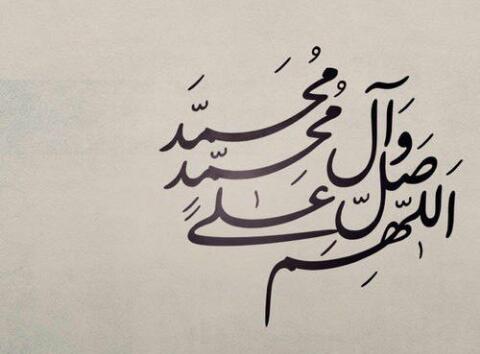 اَللّٰهُمَّ صَلِّ عَلیٰ مُحَمَّدٍ وَآلِ مُحَمَّد